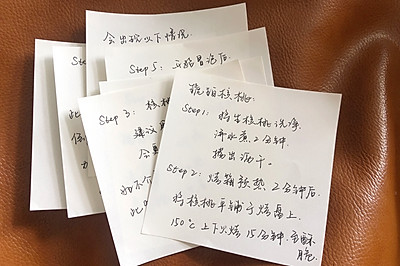 会出现以下情况
Step 5: 冒泡后
Step
Step 3: 核桃
建议
会
如不
此
琥珀核桃:
Step 1: 将生核桃洗净.
沸水煮2分钟.
捞出沥干.
Step 2: 烤箱预热2分钟后.
将核桃平铺于烤盘上.
150℃上下火烤15分钟.至酥
脆.